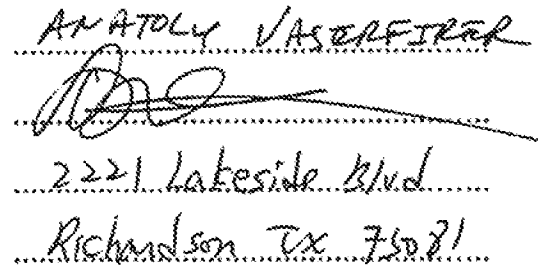 ANATOLY VASERFIRER
2221 Lakeside Blvd
Richardson TX 75081